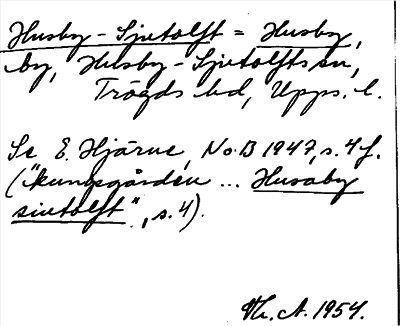 Husby-Sjutolft = Husby,
by, Husby-Sjutolfts sn,
Trögds hd, Upps. l.
Se E. Hjärne, NoB 1947, s. 4 f.
("kungsgården ... Husaby
siutolft", s. 4).
Th. A. 1954.